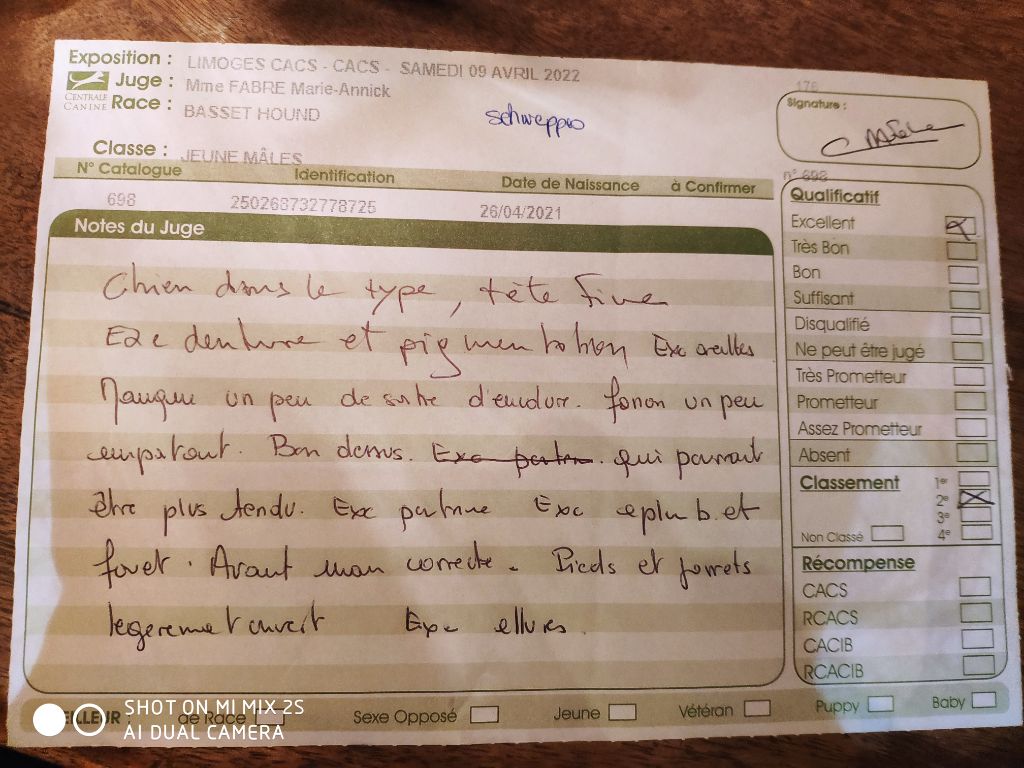 Exposition : LIMOGES CACS - CACS - SAMEDI 09 AVRIL 2022
Juge : Mme FABRE Marie-Annick
CENTRALE CANINE
Race : BASSET HOUND
schweppes
Classe : JEUNE MÂLES
176
Signature :
N° Catalogue Identification Date de Naissance à Confirmer
698 250268732778725 26/04/2021
n° 698
Notes du Juge
Chien dans le type, tête fine
Exc denture et pigmentation Exc oreilles
Manque un peu de d'encolure. fanon un peu
empatant. Bon dessus. Exc qui pourrait
être plus tendu. Exc poitrine Exc
fouet. Avant main correcte. Pieds et jarrets
legerement ouvert Exc allures.
Qualificatif
Excellent
Très Bon
Bon
Suffisant
Disqualifié
Ne peut être jugé
Très Prometteur
Prometteur
Assez Prometteur
Absent
Classement
1er
2e
3e
Non Classé 4e
Récompense
CACS
RCACS
CACIB
RCACIB
de Race Sexe Opposé Jeune Vétéran Puppy Baby
SHOT ON MI MIX 2S
AI DUAL CAMERA